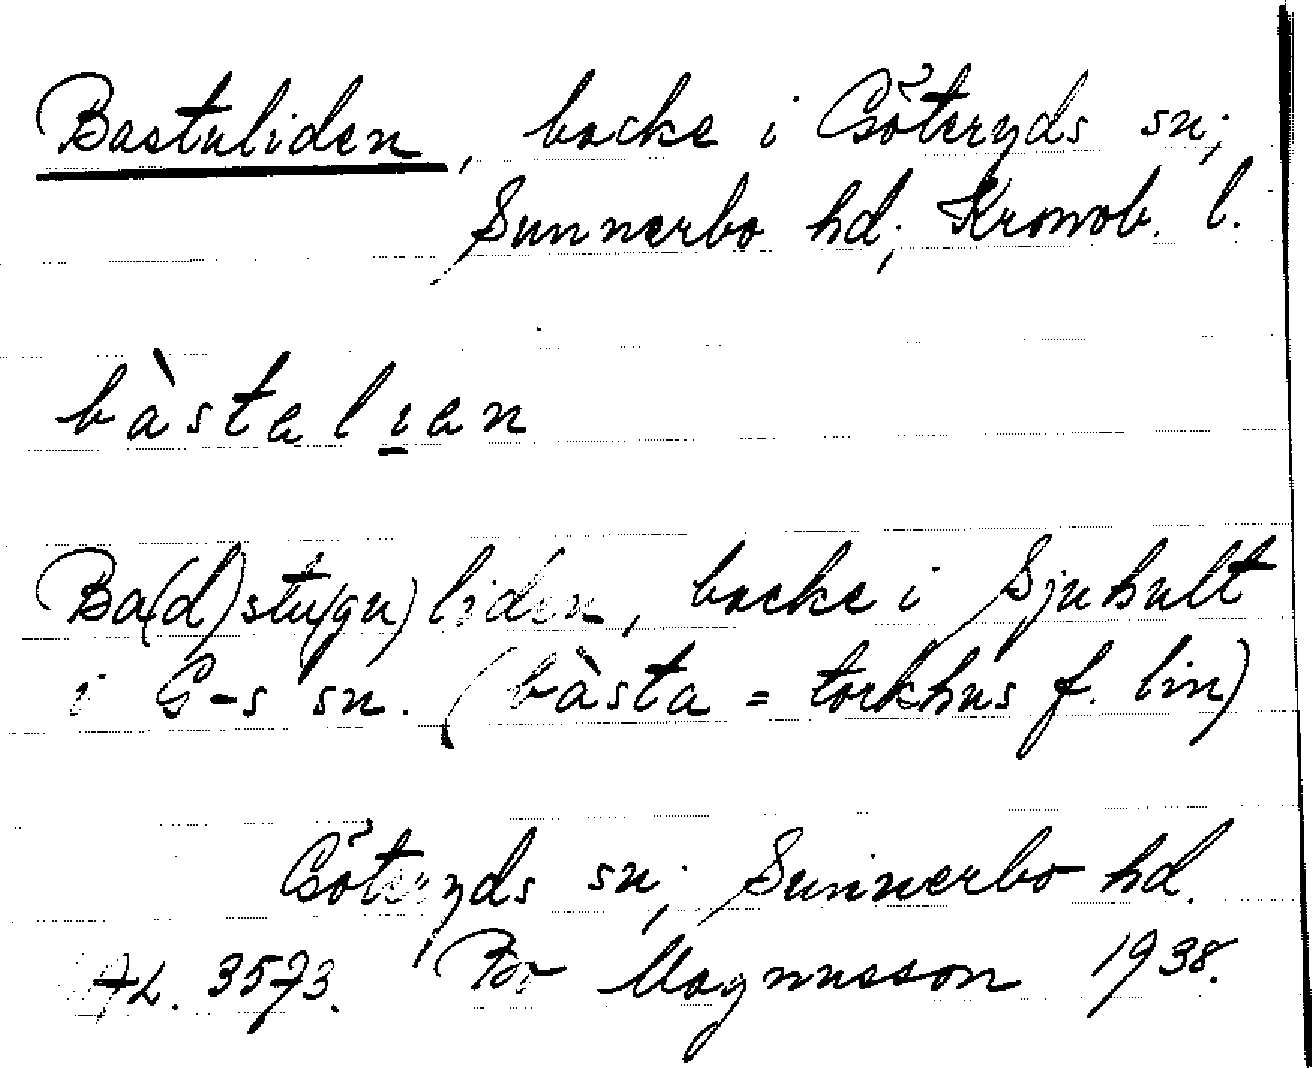 Bastuliden, backe i Göteryds sn;
Sunnerbo hd; Kronob. l.
bàstalian
Ba(d)stu(gu)liden, backe i Sjuhult
i G-s sn. (bàsta = torkhus f. lin)
Göteryds sn; Sunnerbo hd.
AL. 3573. Per Magnusson 1938.